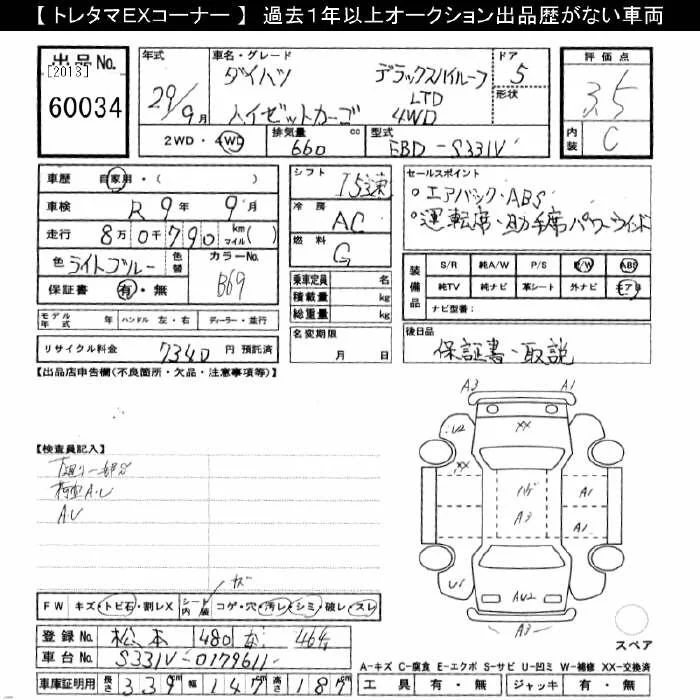 【 トレタマEXコーナー 】 過去１年以上オークション出品歴がない車両
出品No.
[2013]
60034
年式
29/9月
車名・グレード
ダイハツ デラックスハイルーフ
LTD
ハイゼットカーゴ 4WD
ドア
5
形状
評価点
3.5
内装
C
2WD・4WD
排気量 660 cc
型式 EBD-S331V
車歴 自家用・( )
車検 R 9年 9月
走行 8万0千790 km マイル( )
色 ライトブルー 色替
カラーNo.
B69
保証書 有・無
モデル年式 年 ハンドル 左・右 ディーラー・並行
リサイクル料金 7340 円 預託済
シフト I5速
冷房 AC
燃料 G
乗車定員 名
積載量 kg
総重量 kg
名変期限
月 日
セールスポイント
○エアバック・ABS
○運転席・助手席パワーウインド
装備品
S/R 純A/W P/S P/W ABS
純TV 純ナビ 革シート 外ナビ エアB
ナビ型番:
後日品
保証書・取説
【出品店申告欄(不良箇所・欠品・注意事項等)】
【検査員記入】
A・U
A3 A1
U2 XX
XX
A3
A1
A1
U1 AU2
A3
スペア
FW キズ・トビ石・割レX シート内装 コゲ・穴・汚レ・シミ・破レ・スレ
登録No. 松本 480 464
車台No. S331V-0179611
車庫証明用 長さ 339cm 幅 147cm 高さ 187cm
A-キズ C-腐食 E-エクボ S-サビ U-凹ミ W-補修 XX-交換済
工具 有・無 ジャッキ 有・無